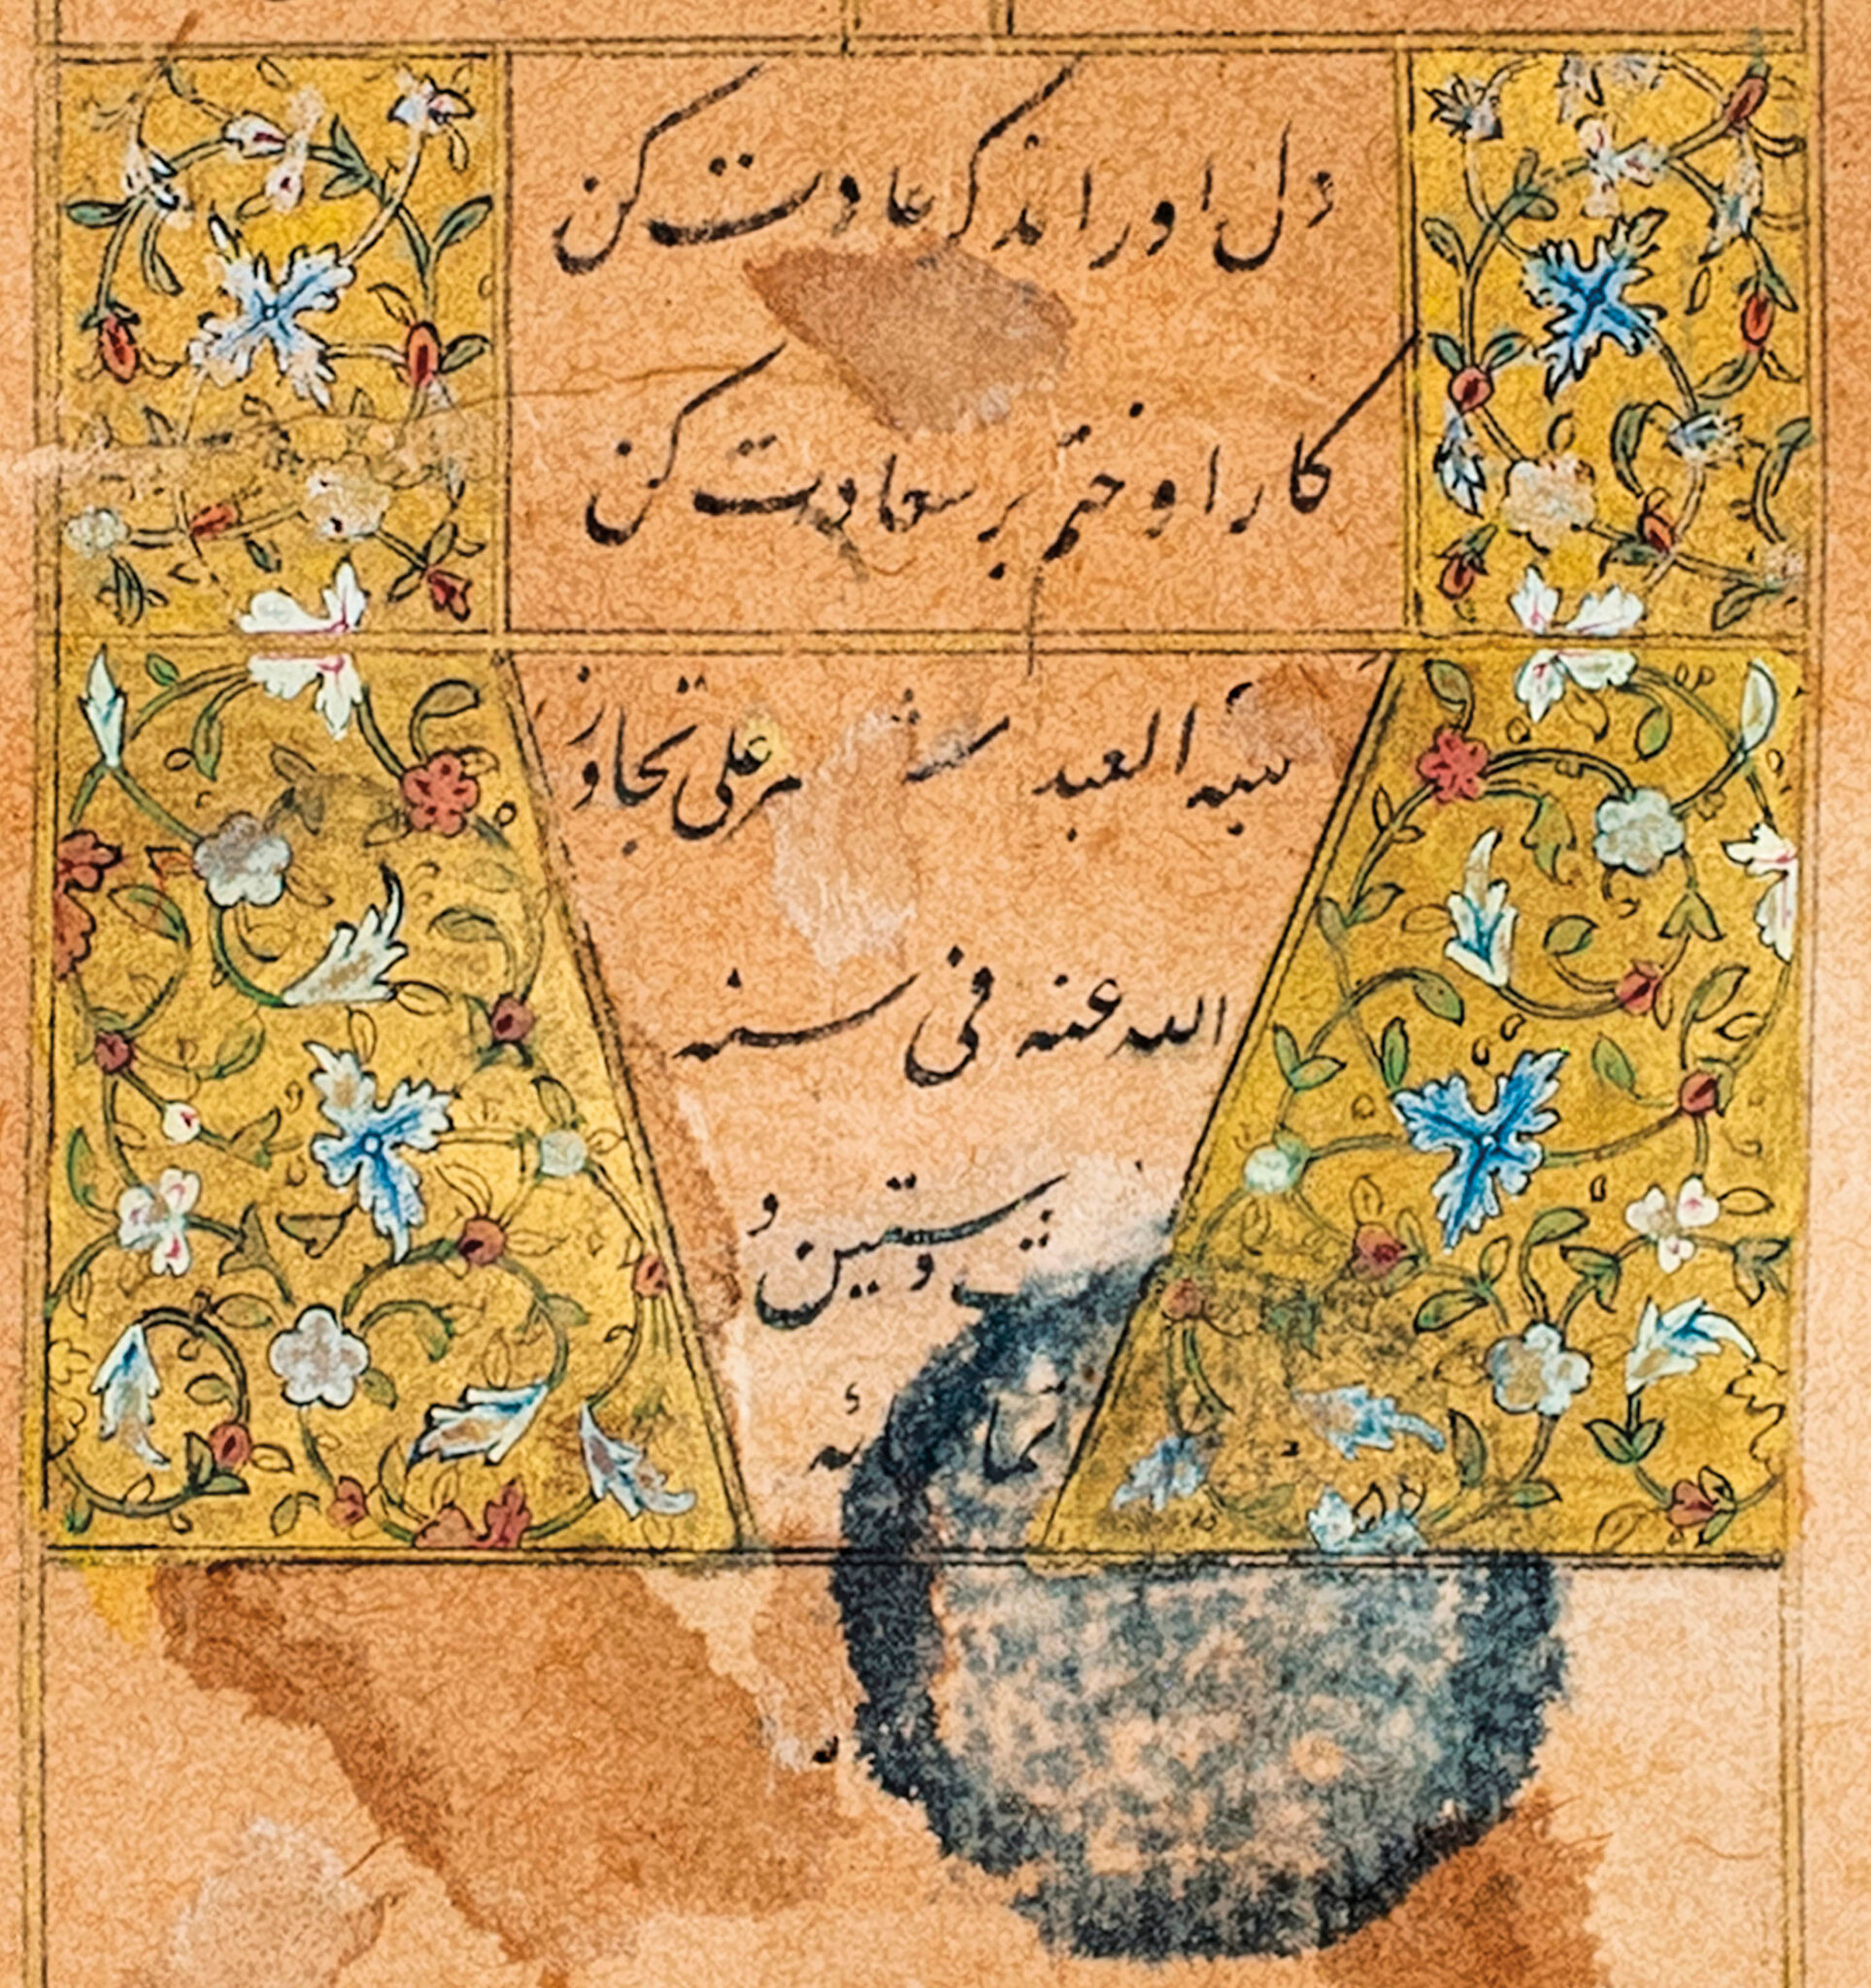 دل او را بذکر عادت کن
کار او ختم بر سعادت کن
کتبه العبد علی تجاوز
الله عنه فی سنه
وستین و
ثمانمائه